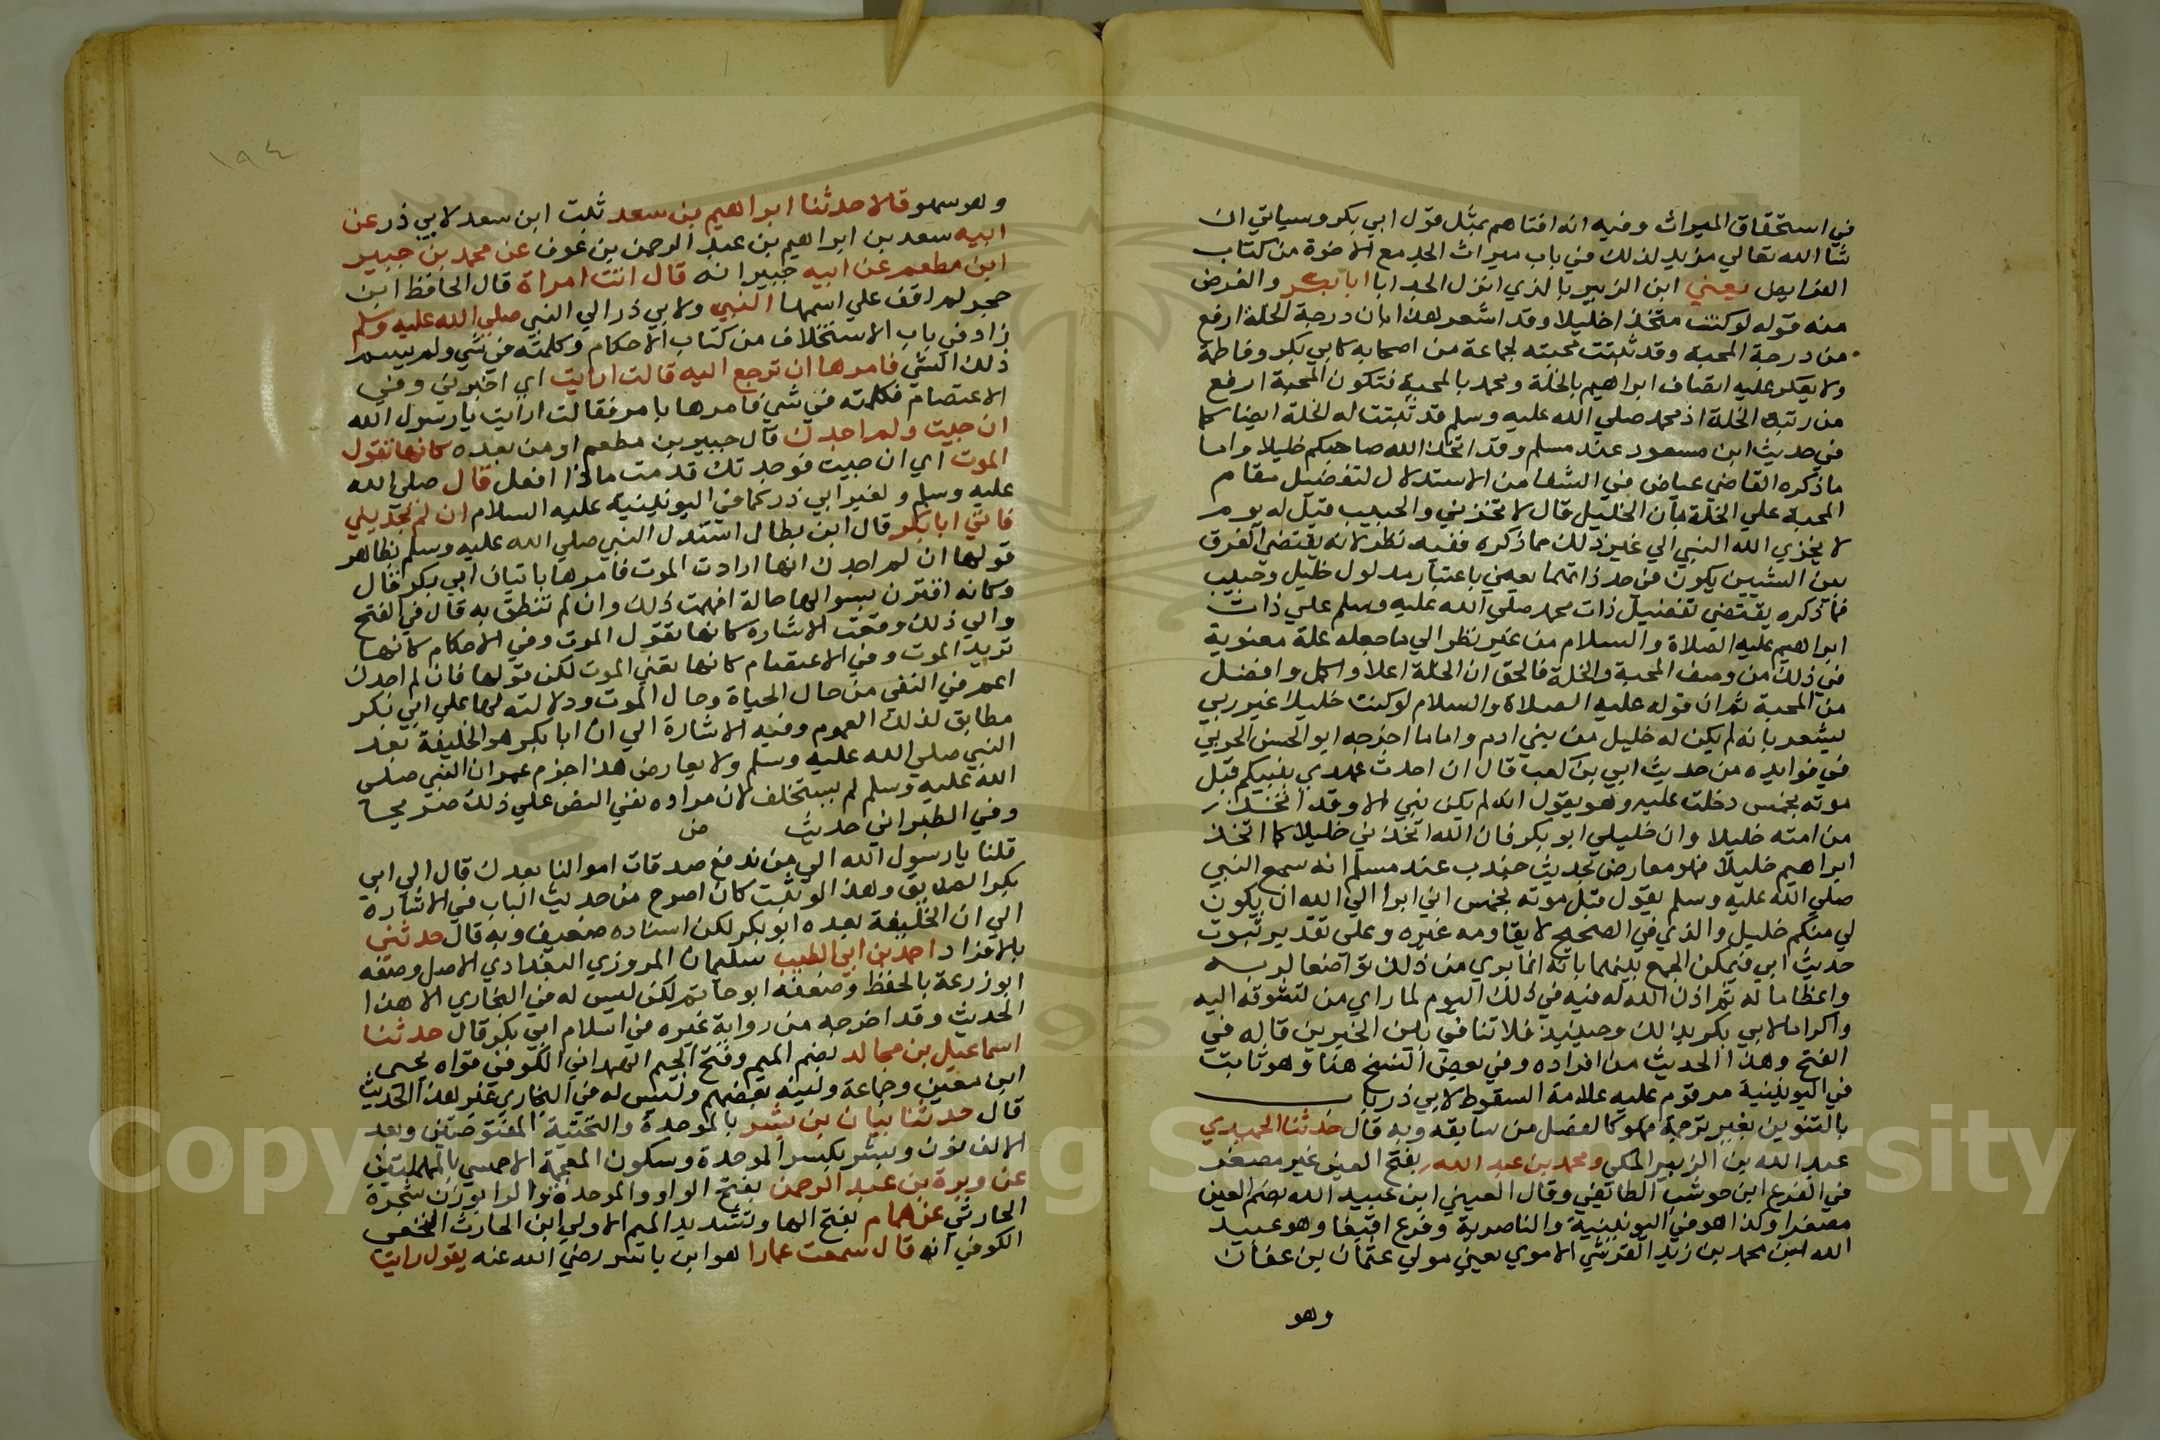 في استحقاق الميراث وفيه انه افتاهم بمثل قول ابي بكر وسياتي ان
شا الله تعالي مزيد لذلك في باب ميراث الجد مع الاخوة من كتاب
الفرايض يعني ابن الزبير بالذي انزل الجد ابا ابا بكر والغرض
منه قوله لو كنت متخذا خليلا وقد اشعر هذا بان درجة الخلة ارفع
من درجة المحبة وقد ثبتت محبته لجماعة من اصحابه كابي بكر وفاطمة
ولا يعكر عليه اتصاف ابراهيم بالخلة ومحمد بالمحبة فتكون المحبة ارفع
من رتبة الخلة اذ محمد صلي الله عليه وسلم قد ثبتت له الخلة ايضا كما
في حديث ابن مسعود عند مسلم وقد اتخذ الله صاحبكم خليلا واما
ما ذكره القاضي عياض في الشفا من الاستدلال لتفضيل مقام
المحبة علي الخلة بان الخليل قال لا تخزني والحبيب قيل له يوم
لا يخزي الله النبي الي غير ذلك مما ذكره ففيه نظر لانه يقتضي الفرق
بين الشيين يكون في حد ذاتهما يعني باعتبار مدلول خليل وحبيب
فما ذكره يقتضي تفضيل ذات محمد صلي الله عليه وسلم علي ذات
ابراهيم عليه الصلاة والسلام من غير نظر الي ما جعله علة معنوية
في ذلك من وصف المحبة والخلة فالحق ان الخلة اعلا واكمل وافضل
من المحبة ثم ان قوله عليه الصلاة والسلام لو كنت خليلا غير ربي
يشعر بانه لم يكن له خليل من بني ادم واما ما اخرجه ابو الحسن الحربي
في فوايده من حديث ابي بن كعب قال ان احدث عهدي بنبيكم قبل
موته بخمس دخلت عليه وهو يقول انه لم يكن نبي الا وقد اتخذ
من امته خليلا وان خليلي ابو بكر فان الله اتخذني خليلا كما اتخذ
ابراهيم خليلا فهو معارض بحديث جندب عند مسلم انه سمع النبي
صلي الله عليه وسلم يقول قبل موته بخمس اني ابرا الي الله ان يكون
لي منكم خليل والذي في الصحيح لا يقاومه غيره وعلي تقدير ثبوت
حديث ابي فيمكن الجمع بينهما بانه انما بري من ذلك تواضعا لربه
واعظاما له ثم اذن الله له فيه في ذلك اليوم لما راي من تشوقه اليه
واكراما لابي بكر بذلك وحينيذ فلا تنافي بين الخبرين قاله في
الفتح وهذا الحديث من افراده وفي بعض النسخ هنا وهو ثابت
في اليونينية مرقوم عليه علامة السقوط لابي ذر باب
بالتنوين بغير ترجمة فهو كالفصل من سابقه وبه قال حدثنا الحميدي
عبد الله بن الزبير المكي ومحمد بن عبد الله بفتح العين غير مصغر
في الفرع ابن حوشب الطائفي وقال العيني ابن عبيد الله بضم العين
مصغرا وكذا هو في اليونينية والناصرية وفرع اقبغا وهو عبيد
الله ابن محمد بن زيد القرشي الاموي يعني مولي عثمان بن عفان
وهو
١٩٤
وهو سهو قالا حدثنا ابراهيم بن سعد ثبت ابن سعد لابي ذر عن
ابيه سعد بن ابراهيم بن عبد الرحمن بن عوف عن محمد بن جبير
ابن مطعم عن ابيه جبير انه قال اتت امراة قال الحافظ ابن
حجر لم اقف علي اسمها النبي ولابي ذر الي النبي صلي الله عليه وسلم
زاد في باب الاستخلاف من كتاب الاحكام وكلمته في شي ولم يسم
ذلك الشي فامرها ان ترجع اليه قالت ارايت اي اخبرني وفي
الاعتصام فكلمته في شي فامرها بامر فقالت ارايت يا رسول الله
ان جيت ولم اجدك قال جبير بن مطعم او من بعده كانها تقول
الموت اي ان جيت فوجدتك قدمت ماذا افعل قال صلي الله
عليه وسلم ولغير ابي ذر كما في اليونينية عليه السلام ان لم تجديني
فاتي ابا بكر قال ابن بطال استدل النبي صلي الله عليه وسلم بظاهر
قولها ان لم اجدك انها ارادت الموت فامرها باتيان ابي بكر قال
وكانه اقترن بسوالها حالة افهمت ذلك وان لم تنطق به قال في الفتح
والي ذلك وقعت الاشارة كانها تقول الموت وفي الاحكام كانها
تريد الموت وفي الاعتصام كانها تعني الموت لكن قولها فان لم اجدك
اعم في النفي من حال الحياة وحال الموت ودلالته لها علي ابي بكر
مطابق لذلك العموم وفيه الاشارة الي ان ابا بكر هو الخليفة بعد
النبي صلي الله عليه وسلم ولا يعارض هذا جزم عمر ان النبي صلي
الله عليه وسلم لم يستخلف لان مراده نفي النص علي ذلك صريحا
وفي الطبراني حديث من
قلنا يا رسول الله الي من ندفع صدقات اموالنا بعدك قال الي ابي
بكر الصديق وهذا لو ثبت كان اصرح من حديث الباب في الاشارة
الي ان الخليفة بعده ابو بكر لكن اسناده ضعيف وبه قال حدثني
بالافراد احمد بن ابي الطيب سليمان المروزي البغدادي الاصل وصفه
ابو زرعة بالحفظ وضعفه ابو حاتم لكن ليس له في البخاري الا هذا
الحديث وقد اخرجه من رواية غيره في اسلام ابي بكر قال حدثنا
اسماعيل بن مجالد بضم الميم وفتح الجيم الهمداني الكوفي قواه يحيي
ابن معين وجماعة ولينه بعضهم وليس له في البخاري غير هذا الحديث
قال حدثنا بيان بن بشر بالموحدة والتحتية المفتوحتين وبعد
الالف نون وبشر بكسر الموحدة وسكون المعجمة الاحمسي بالمهملتين
عن وبرة بن عبد الرحمن بفتح الواو والموحدة والرا بوزن شجرة
الحارثي عن همام بفتح الها وتشديد الميم الاولي ابن الحارث النخعي
الكوفي انه قال سمعت عمارا هو ابن ياسر رضي الله عنه يقول رايت